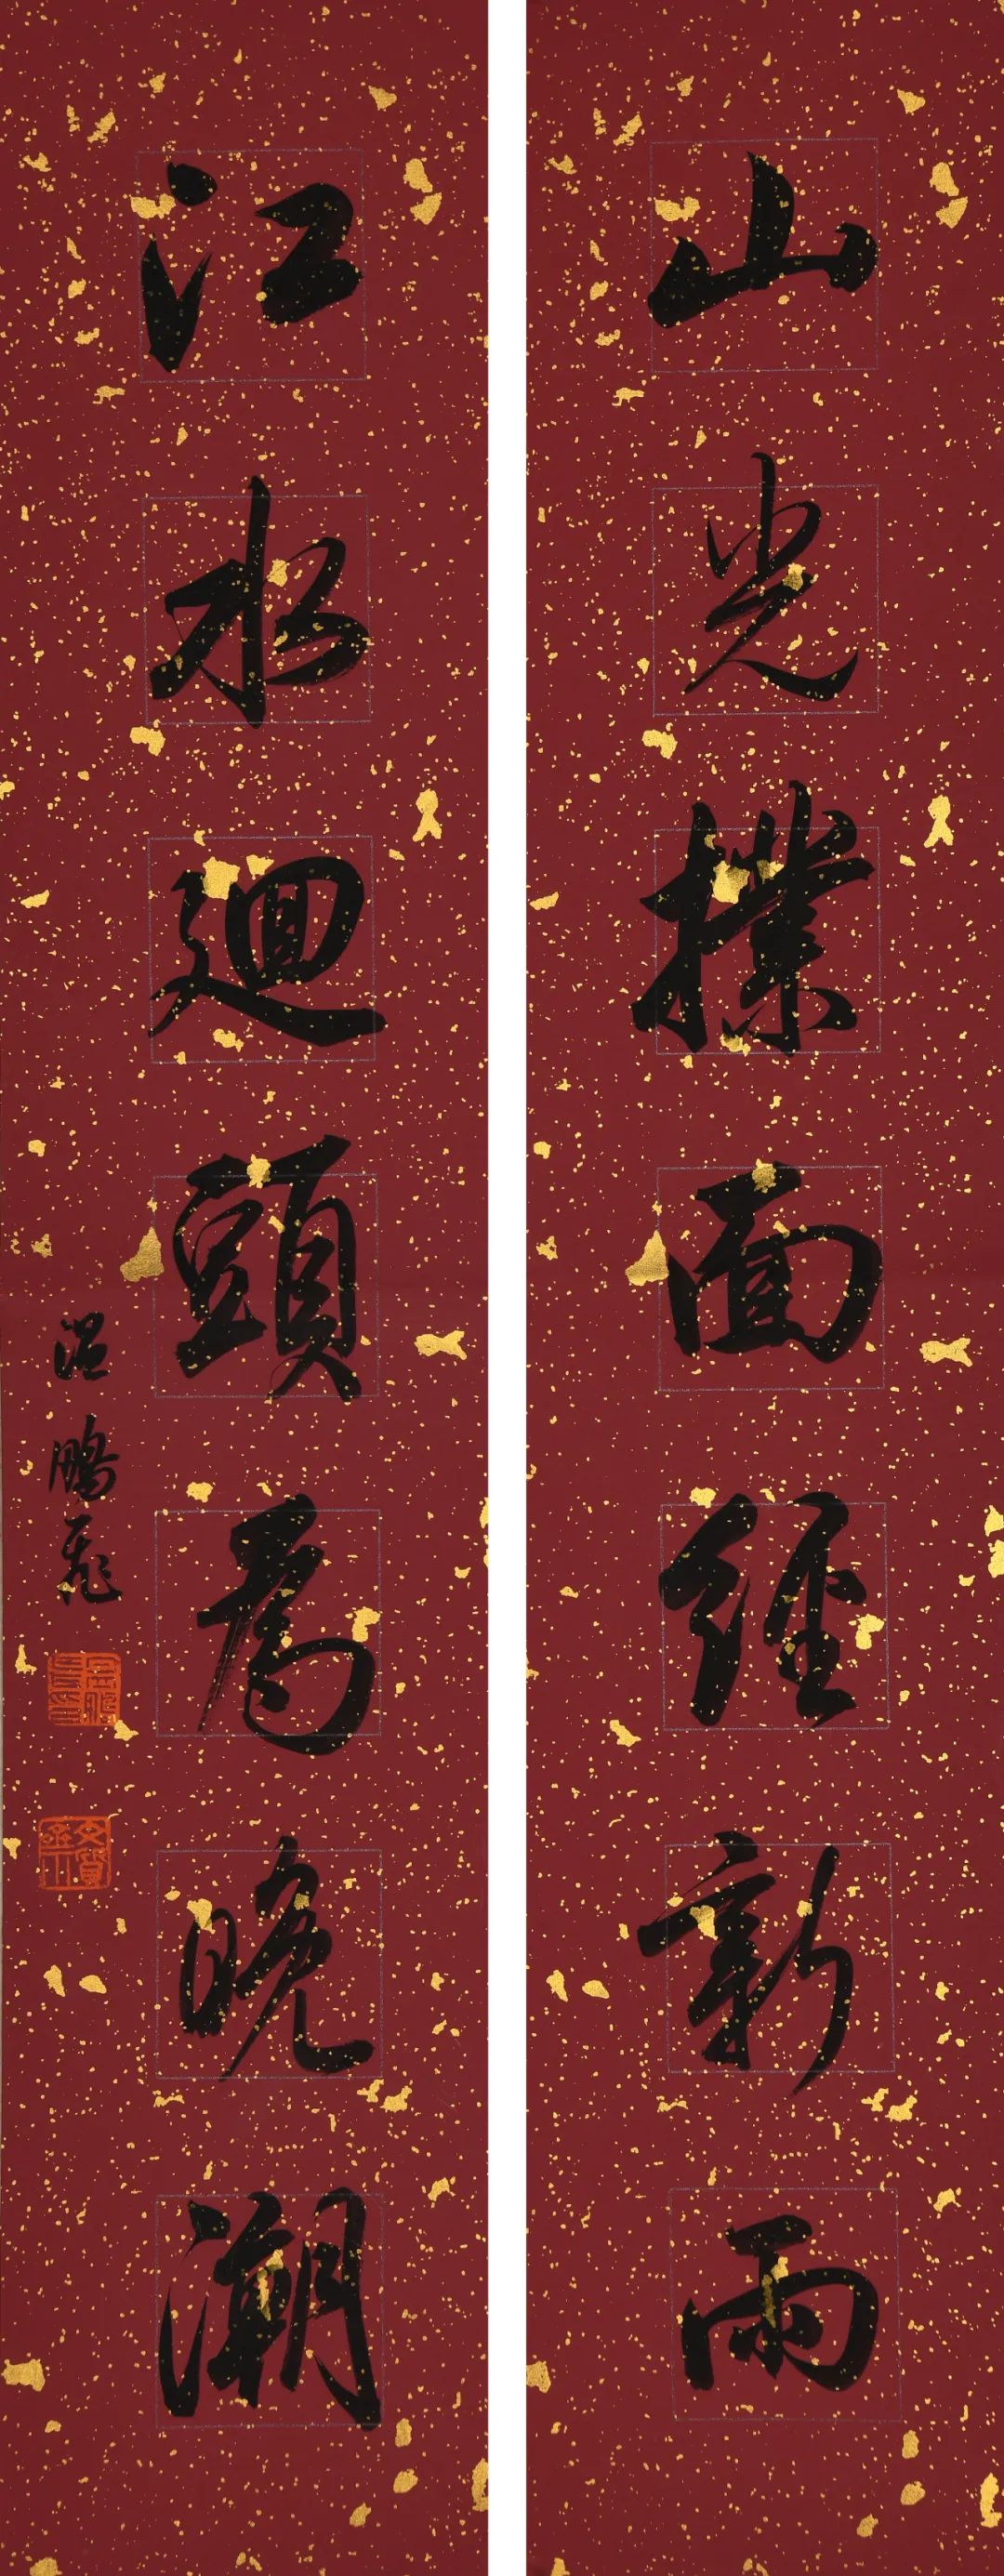 山光撲面經新雨
江水迴頭為晚潮
温鵬飛